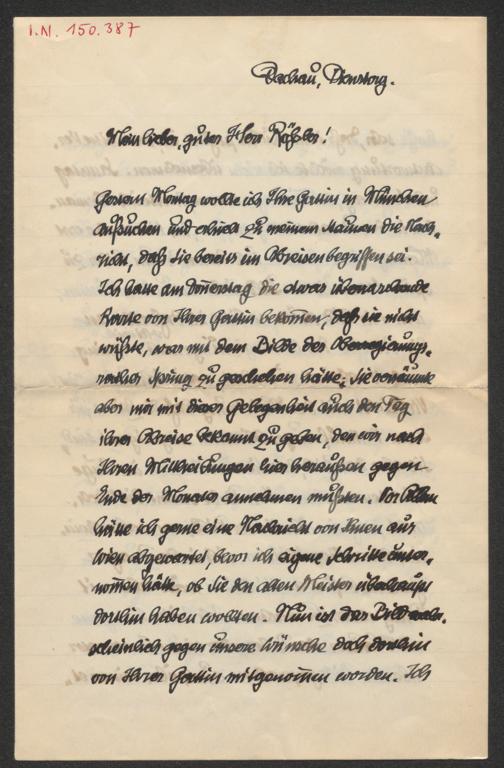 I.N. 150.387
Dachau, Dienstag.
Mein lieber, guter Herr Rößler!
Gestern Montag wollte ich Ihre Gattin in München
aufsuchen und erhielt zu meinem Staunen die Nach-
richt, daß sie bereits im Abreisen begriffen sei.
Ich hatte am Donnerstag die etwas überraschende
Karte von Ihrer Gattin bekommen, daß sie nicht
wüßte, was mit dem Bilde des Oberregierungs-
rathes Spring zu geschehen hätte; sie versäumte
aber mir mit dieser Gelegenheit auch den Tag
ihrer Abreise bekannt zu geben, den wir nach
Ihren Mitteilungen hier heraußen gegen
Ende des Monates annehmen mußten. Vor Allem
hätte ich gerne eine Nachricht von Ihnen aus
Wien abgewartet, bevor ich eigene Schritte unter-
nommen hätte, ob Sie den alten Meister überhaupt
dorthin haben wollten. Nun ist das Bild wahr-
scheinlich gegen unsere Wünsche doch dorthin
von Ihrer Gattin mitgenommen worden. Ich